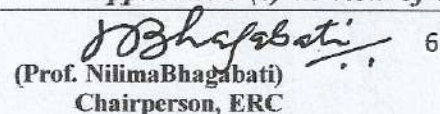 NBhagabati 6
(Prof. NilimaBhagabati)
Chairperson, ERC